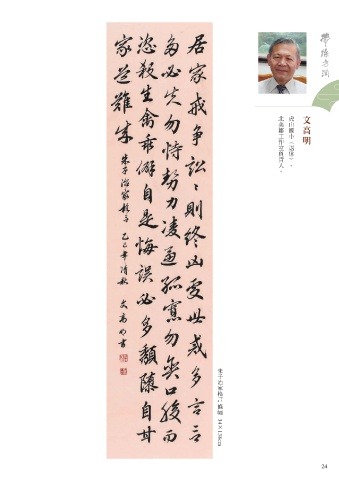 文高明
虎山國小（退休）。
居家戒爭訟訟則終凶處世戒多言言
多必失勿恃勢力凌逼孤寡勿貪口腹而
恣殺生禽乖僻自是悔誤必多頹隳自甘
家道難成
朱子治家格言 乙巳年清秋 文高明書
朱子治家格言 條幅 34×138cm
24